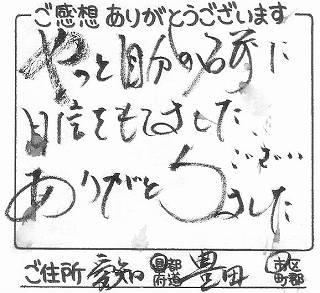 ご感想 ありがとうございます
やっと自分の名前に
自信をもてました
ありがとうございました
ご住所 愛知 県都府道 豊田 市区町郡